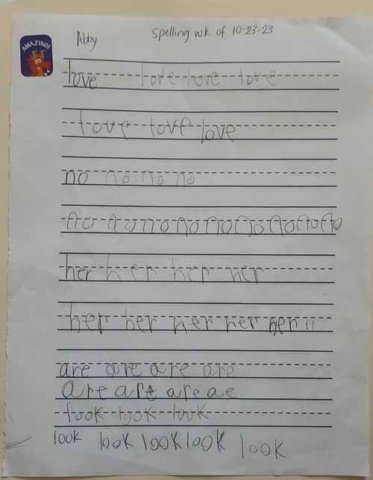 AMAZING!
Abby Spelling wk. of 10-23-23
love love love love
love love love
no no no no
no no no no no no no no no
her her her her
her her her her her
are are are are
are are are ae
look look look
look look look look look